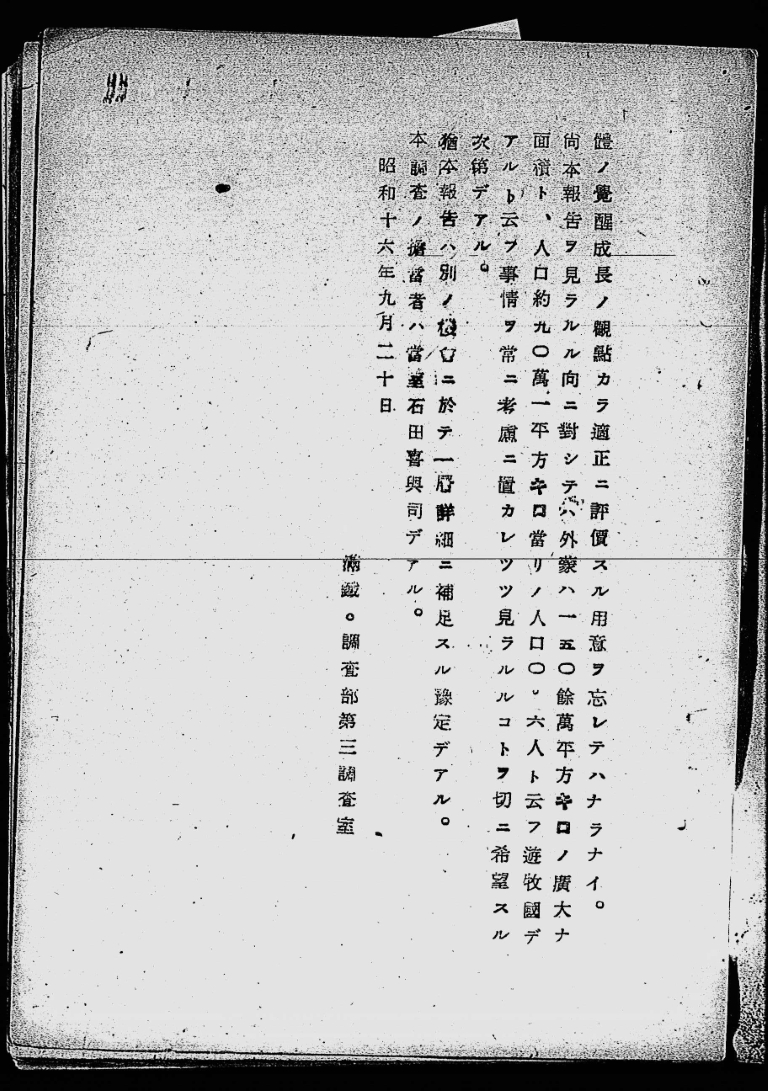 體ノ覺醒成長ノ觀點カラ適正ニ評價スル用意ヲ忘レテハナラナイ。
尚本報告ヲ見ラルル向ニ對シテハ外蒙ハ一五〇餘萬平方キロノ廣大ナ
面積ト、人口約九〇萬一平方キロ當リノ人口〇。六人ト云フ遊牧國デ
アルト云フ事情ヲ常ニ考慮ニ置カレツツ見ラルルコトヲ切ニ希望スル
次第デアル。
猶本報告ハ別ノ機會ニ於テ一層詳細ニ補足スル豫定デアル。
本調査ノ擔當者ハ當室石田喜與司デアル。
昭和十六年九月二十日
滿鐵。調査部第三調査室